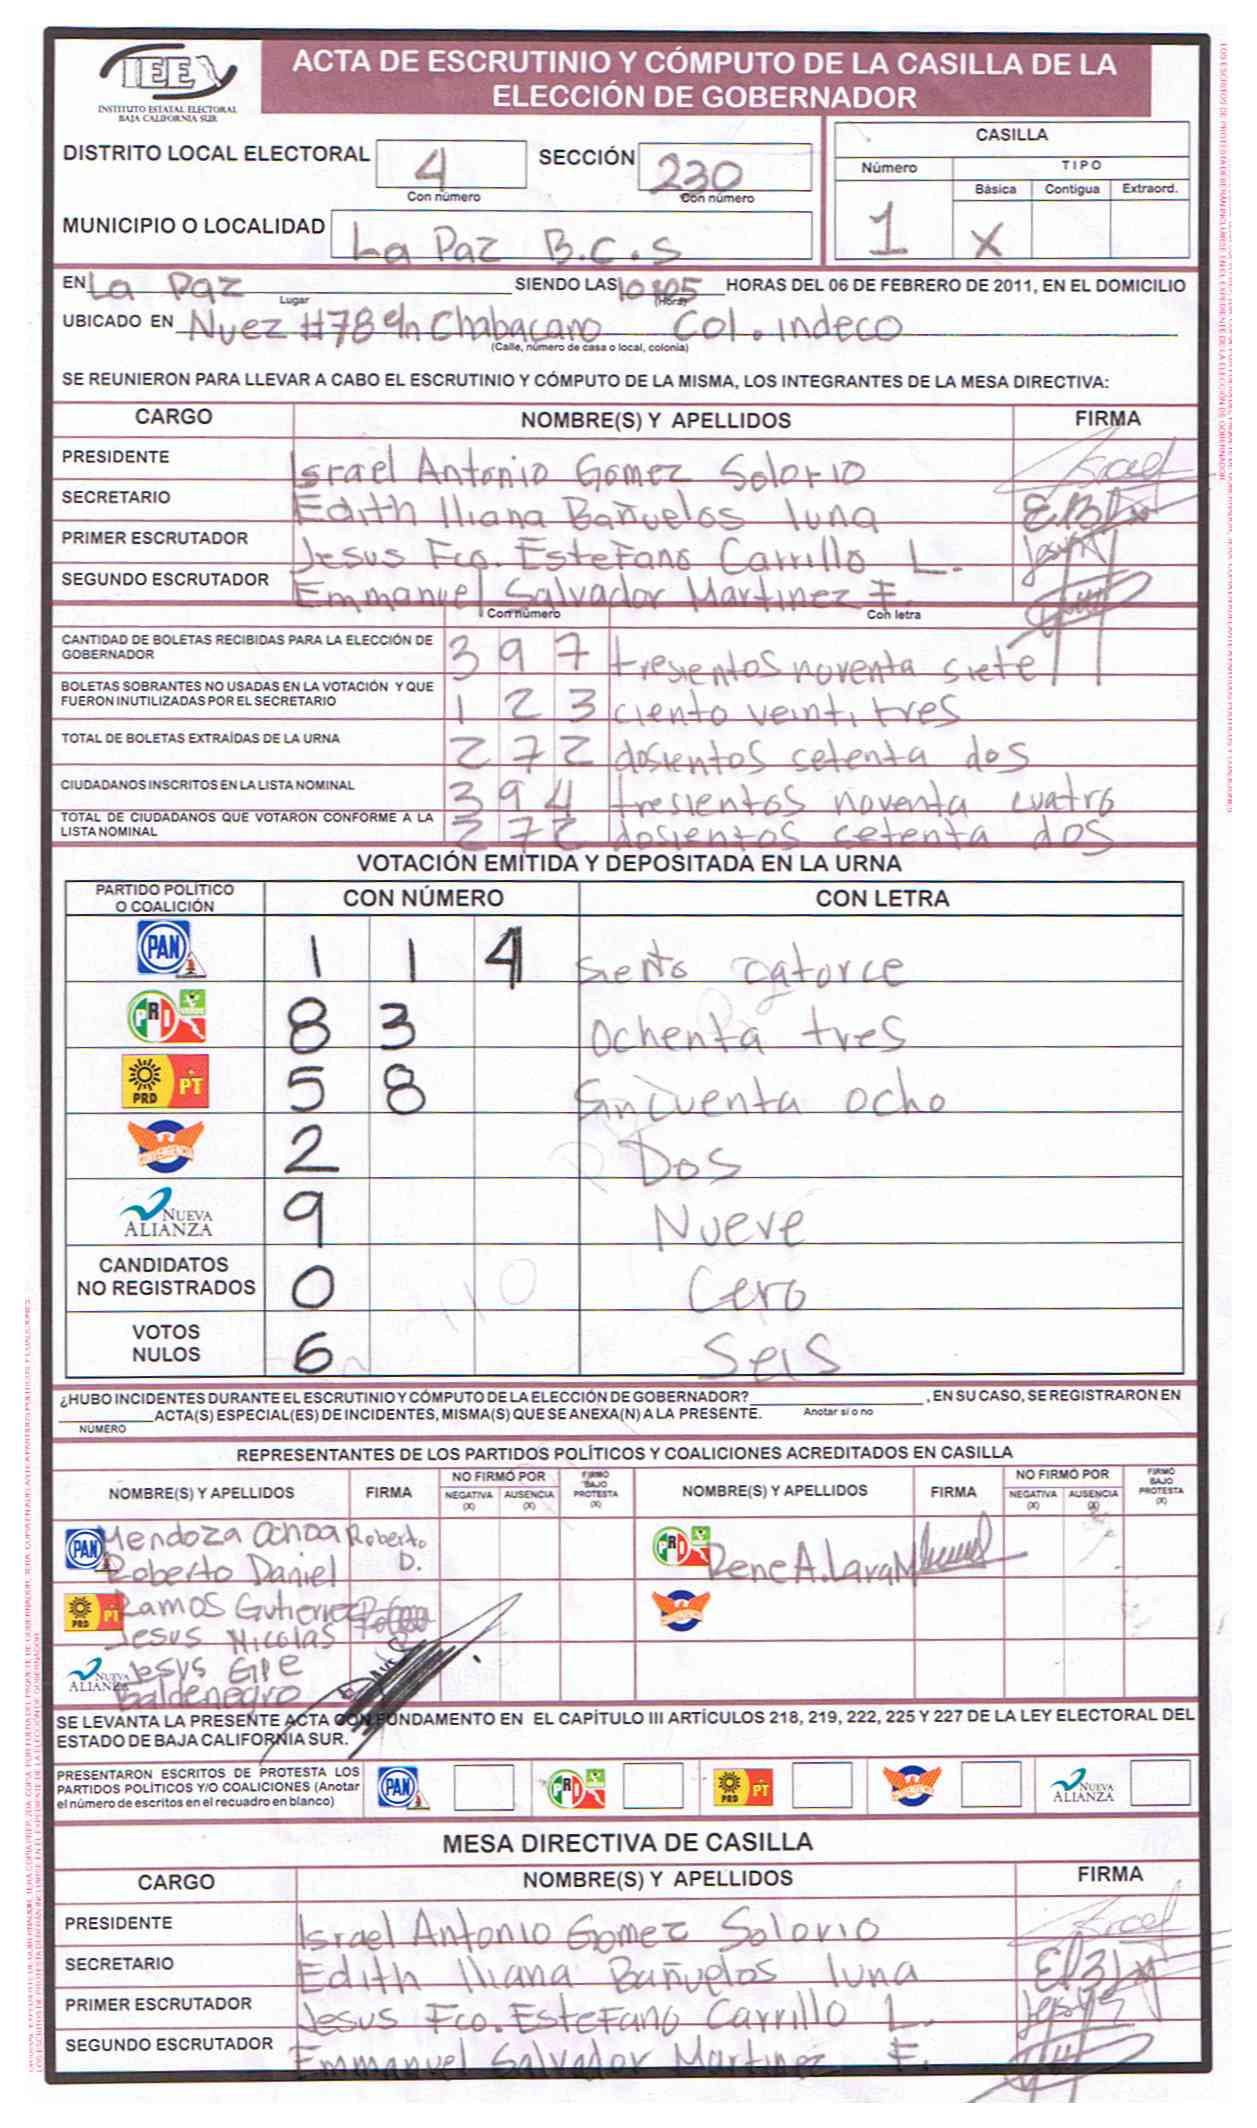 IEE
INSTITUTO ESTATAL ELECTORAL
BAJA CALIFORNIA SUR
ACTA DE ESCRUTINIO Y CÓMPUTO DE LA CASILLA DE LA
ELECCIÓN DE GOBERNADOR
DISTRITO LOCAL ELECTORAL 4 SECCIÓN 230
Con número Con número
MUNICIPIO O LOCALIDAD La Paz B.C.S
CASILLA
Número TIPO
Básica Contigua Extraord.
1 X
EN La Paz SIENDO LAS HORAS DEL 06 DE FEBRERO DE 2011, EN EL DOMICILIO
Lugar (Hora)
UBICADO EN Nuez #78 Chabacano Col. indeco
(Calle, número de casa o local, colonia)
SE REUNIERON PARA LLEVAR A CABO EL ESCRUTINIO Y CÓMPUTO DE LA MISMA, LOS INTEGRANTES DE LA MESA DIRECTIVA:
CARGO NOMBRE(S) Y APELLIDOS FIRMA
PRESIDENTE Israel Antonio Gomez Solorio Israel
SECRETARIO Edith Iliana Bañuelos luna
PRIMER ESCRUTADOR Jesus Fco. Estefano Carrillo L.
SEGUNDO ESCRUTADOR Emmanuel Salvador Martinez F.
Con número Con letra
CANTIDAD DE BOLETAS RECIBIDAS PARA LA ELECCIÓN DE
GOBERNADOR 3 9 7 tresientos noventa siete
BOLETAS SOBRANTES NO USADAS EN LA VOTACIÓN Y QUE
FUERON INUTILIZADAS POR EL SECRETARIO 1 2 3 ciento veinti tres
TOTAL DE BOLETAS EXTRAÍDAS DE LA URNA 2 7 2 dosientos setenta dos
CIUDADANOS INSCRITOS EN LA LISTA NOMINAL 3 9 4 tresientos noventa cuatro
TOTAL DE CIUDADANOS QUE VOTARON CONFORME A LA
LISTA NOMINAL 2 7 2 dosientos cetenta dos
VOTACIÓN EMITIDA Y DEPOSITADA EN LA URNA
PARTIDO POLÍTICO
O COALICIÓN CON NÚMERO CON LETRA
PAN 1 1 4 siento catorce
PRI VERDE 8 3 ochenta tres
PRD PT 5 8 sincuenta ocho
CONVERGENCIA 2 Dos
NUEVA ALIANZA 9 Nueve
CANDIDATOS
NO REGISTRADOS 0 Cero
VOTOS
NULOS 6 Seis
¿HUBO INCIDENTES DURANTE EL ESCRUTINIO Y CÓMPUTO DE LA ELECCIÓN DE GOBERNADOR? , EN SU CASO, SE REGISTRARON EN
Anotar si o no
ACTA(S) ESPECIAL(ES) DE INCIDENTES, MISMA(S) QUE SE ANEXA(N) A LA PRESENTE.
NÚMERO
REPRESENTANTES DE LOS PARTIDOS POLÍTICOS Y COALICIONES ACREDITADOS EN CASILLA
NOMBRE(S) Y APELLIDOS FIRMA NO FIRMÓ POR NEGATIVA (X) AUSENCIA (X) FIRMÓ BAJO PROTESTA (X) NOMBRE(S) Y APELLIDOS FIRMA NO FIRMÓ POR NEGATIVA (X) AUSENCIA (X) FIRMÓ BAJO PROTESTA (X)
PAN Mendoza Ochoa Roberto
Roberto Daniel D.
PRI Rene A. Lara M
PRD PT Ramos Gutierrez
Jesus Nicolas
NUEVA ALIANZA Jesus Gpe
Baldenegro
SE LEVANTA LA PRESENTE ACTA CON FUNDAMENTO EN EL CAPÍTULO III ARTÍCULOS 218, 219, 222, 225 Y 227 DE LA LEY ELECTORAL DEL
ESTADO DE BAJA CALIFORNIA SUR.
PRESENTARON ESCRITOS DE PROTESTA LOS
PARTIDOS POLÍTICOS Y/O COALICIONES (Anotar
el número de escritos en el recuadro en blanco)
PAN PRI PRD PT NUEVA ALIANZA
MESA DIRECTIVA DE CASILLA
CARGO NOMBRE(S) Y APELLIDOS FIRMA
PRESIDENTE Israel Antonio Gomez Solorio Israel
SECRETARIO Edith Iliana Bañuelos luna
PRIMER ESCRUTADOR Jesus Fco. Estefano Carrillo L.
SEGUNDO ESCRUTADOR Emmanuel Salvador Martinez F.